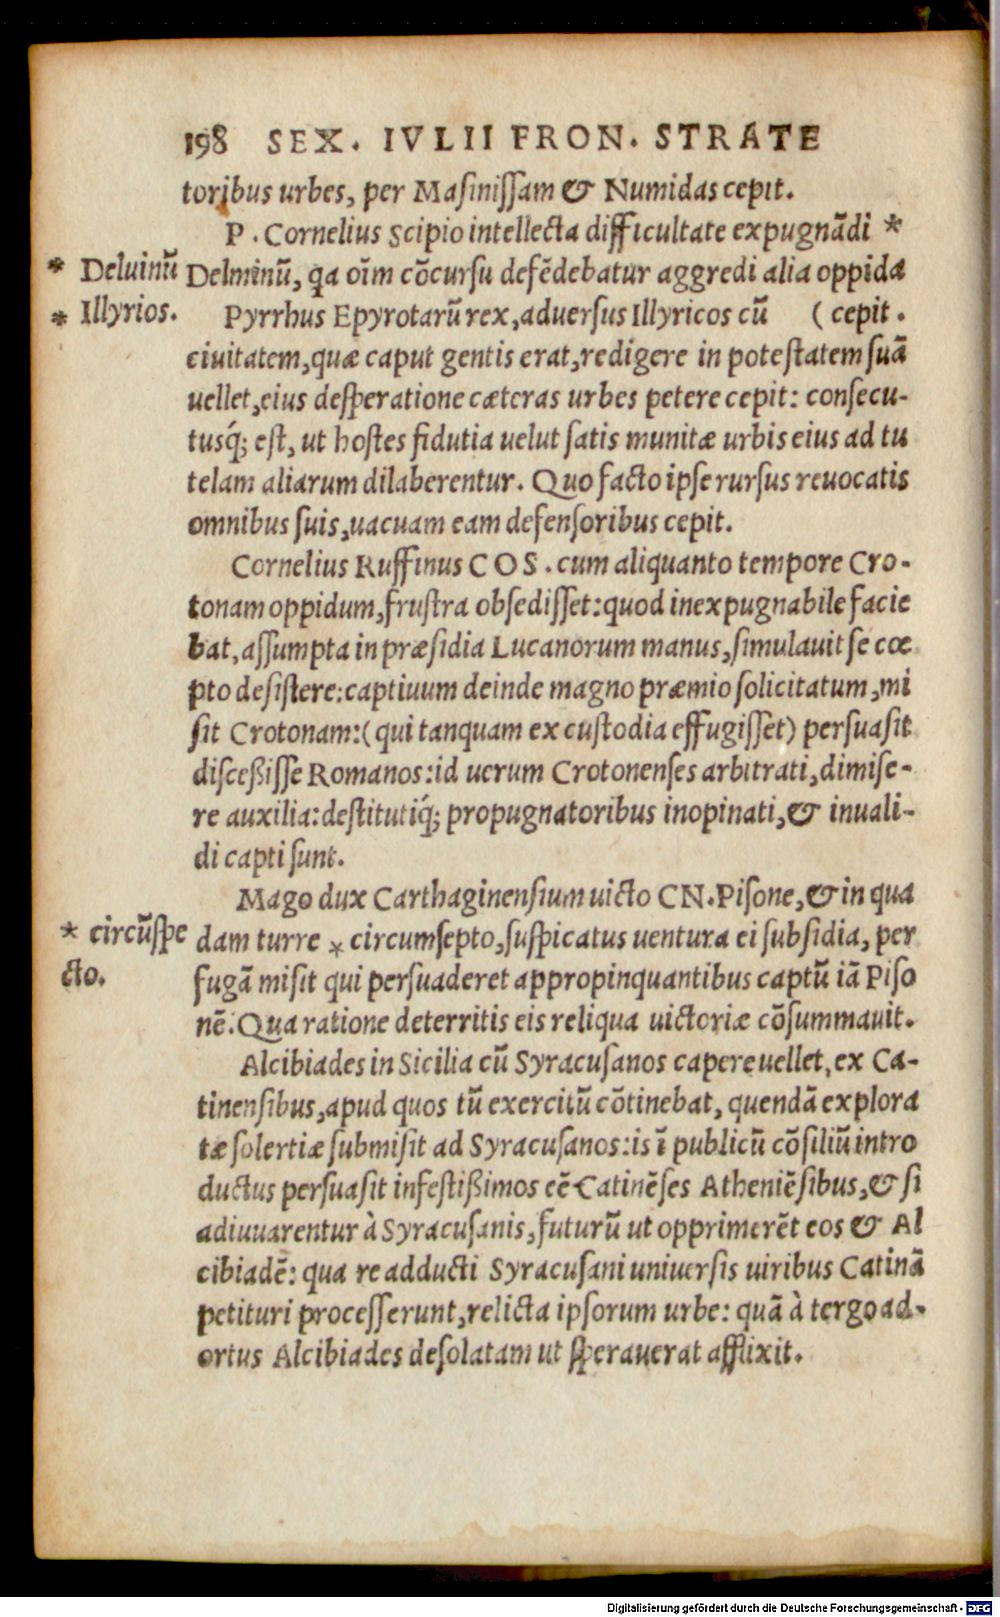 198 SEX. IVLII FRON. STRATE
toribus urbes, per Masinissam & Numidas cepit.
P. Cornelius Scipio intellecta difficultate expugnãdi *
* Deluinũ
Delminũ, qa oĩm cõcursu defẽdebatur aggredi alia oppida
* Illyrios.
Pyrrhus Epyrotarũ rex, adversus Illyricos cũ (cepit.
civitatem, quæ caput gentis erat, redigere in potestatem suã
vellet, eius desperatione cæteras urbes petere cepit: consecu-
tusq́; est, ut hostes fidutia velut satis munitæ urbis eius ad tu
telam aliarum dilaberentur. Quo facto ipse rursus revocatis
omnibus suis, vacuam eam defensoribus cepit.
Cornelius Ruffinus COS. cum aliquanto tempore Cro-
tonam oppidum, frustra obsedisset: quod inexpugnabile facie
bat, assumpta in præsidia Lucanorum manus, simulavit se cœ
pto desistere: captivum deinde magno præmio solicitatum, mi
sit Crotonam: (qui tanquam ex custodia effugisset) persuasit
discessisse Romanos: id verum Crotonenses arbitrati, dimise-
re auxilia: destitutiq́; propugnatoribus inopinati, & invali-
di capti sunt.
Mago dux Carthaginensium victo CN. Pisone, & in qua
* circũspe
cto.
dam turre * circumsepto, suspicatus ventura ei subsidia, per
fugã misit qui persuaderet appropinquantibus captũ iã Piso
nẽ. Qua ratione deterritis eis reliqua victoriæ cõsummavit.
Alcibiades in Sicilia cũ Syracusanos capere vellet, ex Ca-
tinensibus, apud quos tũ exercitũ cõtinebat, quendã explora
tæ solertiæ submisit ad Syracusanos: is ĩ publicũ cõsiliũ intro
ductus persuasit infestissimos eẽ Catinẽses Atheniẽsibus, & si
adiuvarentur à Syracusanis, futurũ ut opprimerẽt eos & Al
cibiadẽ: qua re adducti Syracusani universis viribus Catinã
petituri processerunt, relicta ipsorum urbe: quã à tergo ad-
ortus Alcibiades desolatam ut speraverat afflixit.
Digitalisierung gefördert durch die Deutsche Forschungsgemeinschaft - DFG